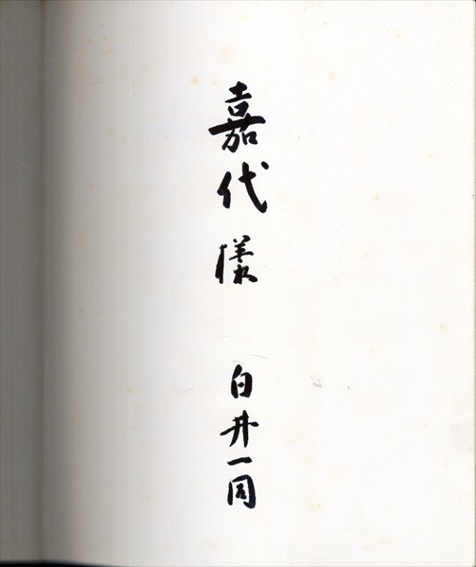 嘉代様 白井一同